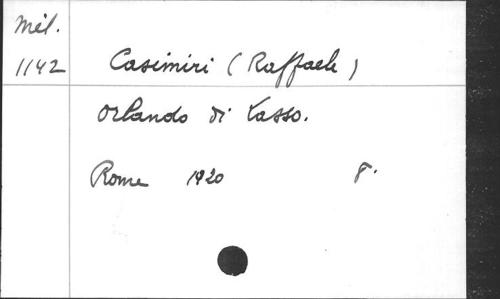 Mél.
1142 Casimiri (Raffaele)
Orlando di Lasso.
Rome 1920 8°.